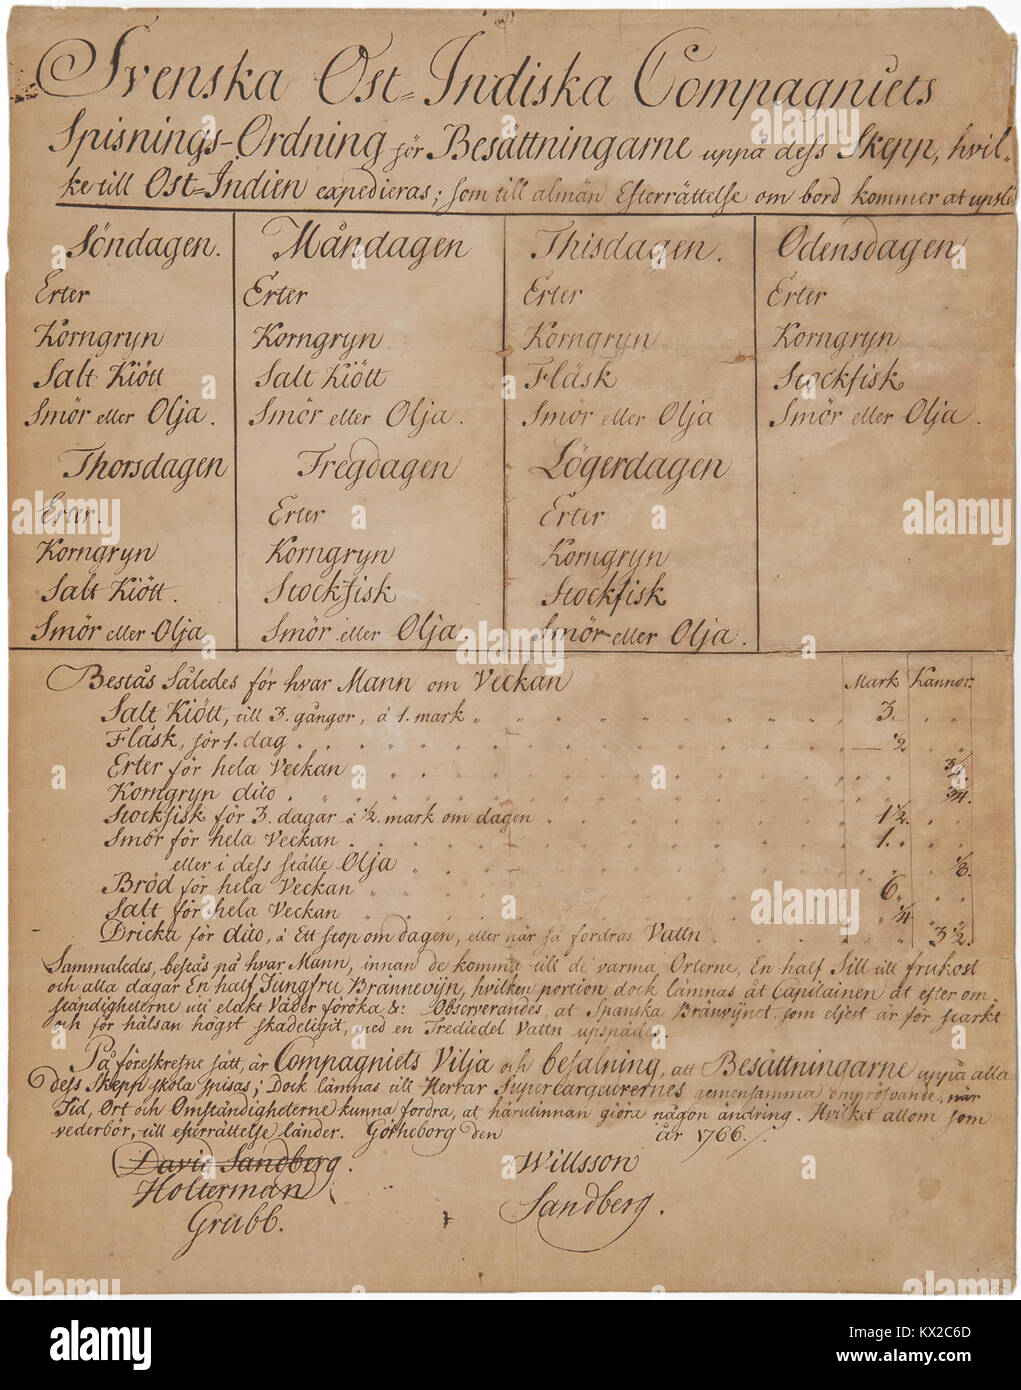 Svenska Ost=Indiska Compagniets
Spisnings-Ordning för Besättningarne uppå dess Skepp, hvil-
ke till Ost=Indien expedieras; som till almän Efterrättelse om bord kommer at upslå
Söndagen. Måndagen Thisdagen. Odensdagen
Erter Erter Erter Erter
Korngryn Korngryn Korngryn Korngryn
Salt Kiött Salt Kiött Fläsk Stockfisk
Smör eller Olja. Smör eller Olja. Smör eller Olja Smör eller Olja.
Thorsdagen Fregdagen Lögerdagen
Erter. Erter Erter
Korngryn Korngryn Korngryn
Salt Kiött. Stockfisk Stockfisk
Smör eller Olja Smör eller Olja. Smör eller Olja.
Bestås Således för hvar Mann om Veckan Mark Kannor.
Salt Kiött, till 3. gångor, à 1. mark 3.
Fläsk, för 1. dag — 1/2
Erter för hela Veckan 3/4.
Korngryn dito 3/4.
Stockfisk för 3. dagar à 1/2. mark om dagen 1 1/2.
Smör för hela Veckan 1.
eller i dess ställe Olja 1/8.
Bröd för hela Veckan 6
Salt för hela Veckan 1/4
Dricka för dito, à Ett stop om dagen, eller när så fordras Vattn 3 1/2.
Sammaledes, bestås på hvar Mann, innan de komma till de varma Orterne, En half Sill till frukost
och alla dagar En half Jungfru Brännevijn, hvilken portion dock lämnas åt Capitainen at efter om-
ständigheterne uti elakt Väder föröka &: Observerandes, at Spanska Bränvijnet, som eljest är för starkt
och för hälsan högst skadeligit, med en Trediedel Vattn upspädes.
På föreskrefne sätt, är Compagniets Vilja och befalning, att Besättningarne uppå alla
dess Skepp skola spisas; Dock lämnas till Herrar Supercargeurernes gemensamma ompröfvande, när
Tid, Ort och Omständigheterne kunna fordra, at härutinnan giöre någon ändring. Hvilket allom som
vederbör, till efterrättelse länder. Götheborg den år 1766./.
David Sandberg. Willsson
Holterman Sandberg.
Grubb.
alamy
alamy stock photo
KX2C6D
www.alamy.com